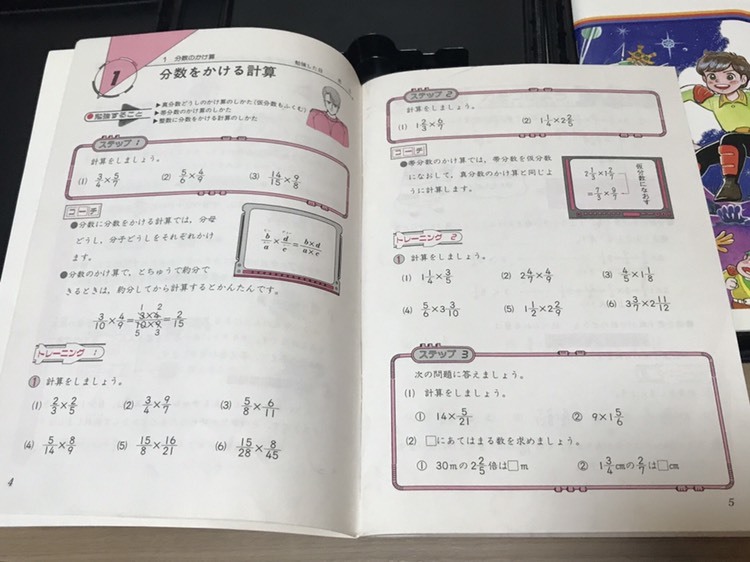 1 分数のかけ算
1 分数をかける計算
勉強した日 月 日
勉強すること
▶真分数どうしのかけ算のしかた(仮分数もふくむ)
▶帯分数のかけ算のしかた
▶整数に分数をかける計算のしかた
ステップ 1
計算をしましょう。
(1) 3/4×5/7 (2) 5/6×4/9 (3) 14/15×9/8
コーチ
●分数に分数をかける計算では，分母
どうし，分子どうしをそれぞれかけ
ます。
b/a×d/c=b×d/a×c
●分数のかけ算で，とちゅうで約分で
きるときは，約分してから計算するとかんたんです。
1 2
3/10×4/9=3×4/10×9=2/15
5 3
トレーニング 1
1 計算をしましょう。
(1) 2/3×2/5 (2) 3/4×9/7 (3) 5/8×6/11
(4) 5/14×8/9 (5) 15/8×16/21 (6) 15/28×8/45
4
ステップ 2
計算をしましょう。
(1) 1 2/3×6/7 (2) 1 1/4×2 2/5
コーチ
●帯分数のかけ算では，帯分数を仮分数
になおして，真分数のかけ算と同じよ
うに計算します。
2 1/3×1 2/7
=7/3×9/7
仮分数になおす
トレーニング 2
1 計算をしましょう。
(1) 1 1/4×3/5 (2) 2 4/7×4/9 (3) 4/5×1 1/8
(4) 5/6×3 3/10 (5) 1 1/2×2 2/9 (6) 3 3/7×2 11/12
ステップ 3
次の問題に答えましょう。
(1) 計算をしましょう。
① 14×5/21 ② 9×1 5/6
(2) □にあてはまる数を求めましょう。
① 30mの2 2/5倍は□m ② 1 3/4cmの2/7は□cm
5